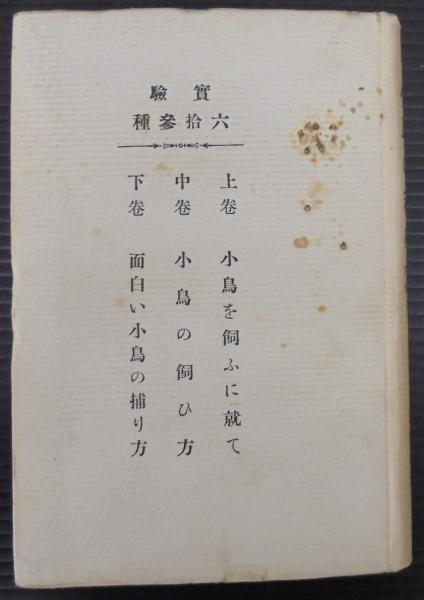 實驗
六拾參種
上卷 小鳥を飼ふに就て
中卷 小鳥の飼ひ方
下卷 面白い小鳥の捕り方